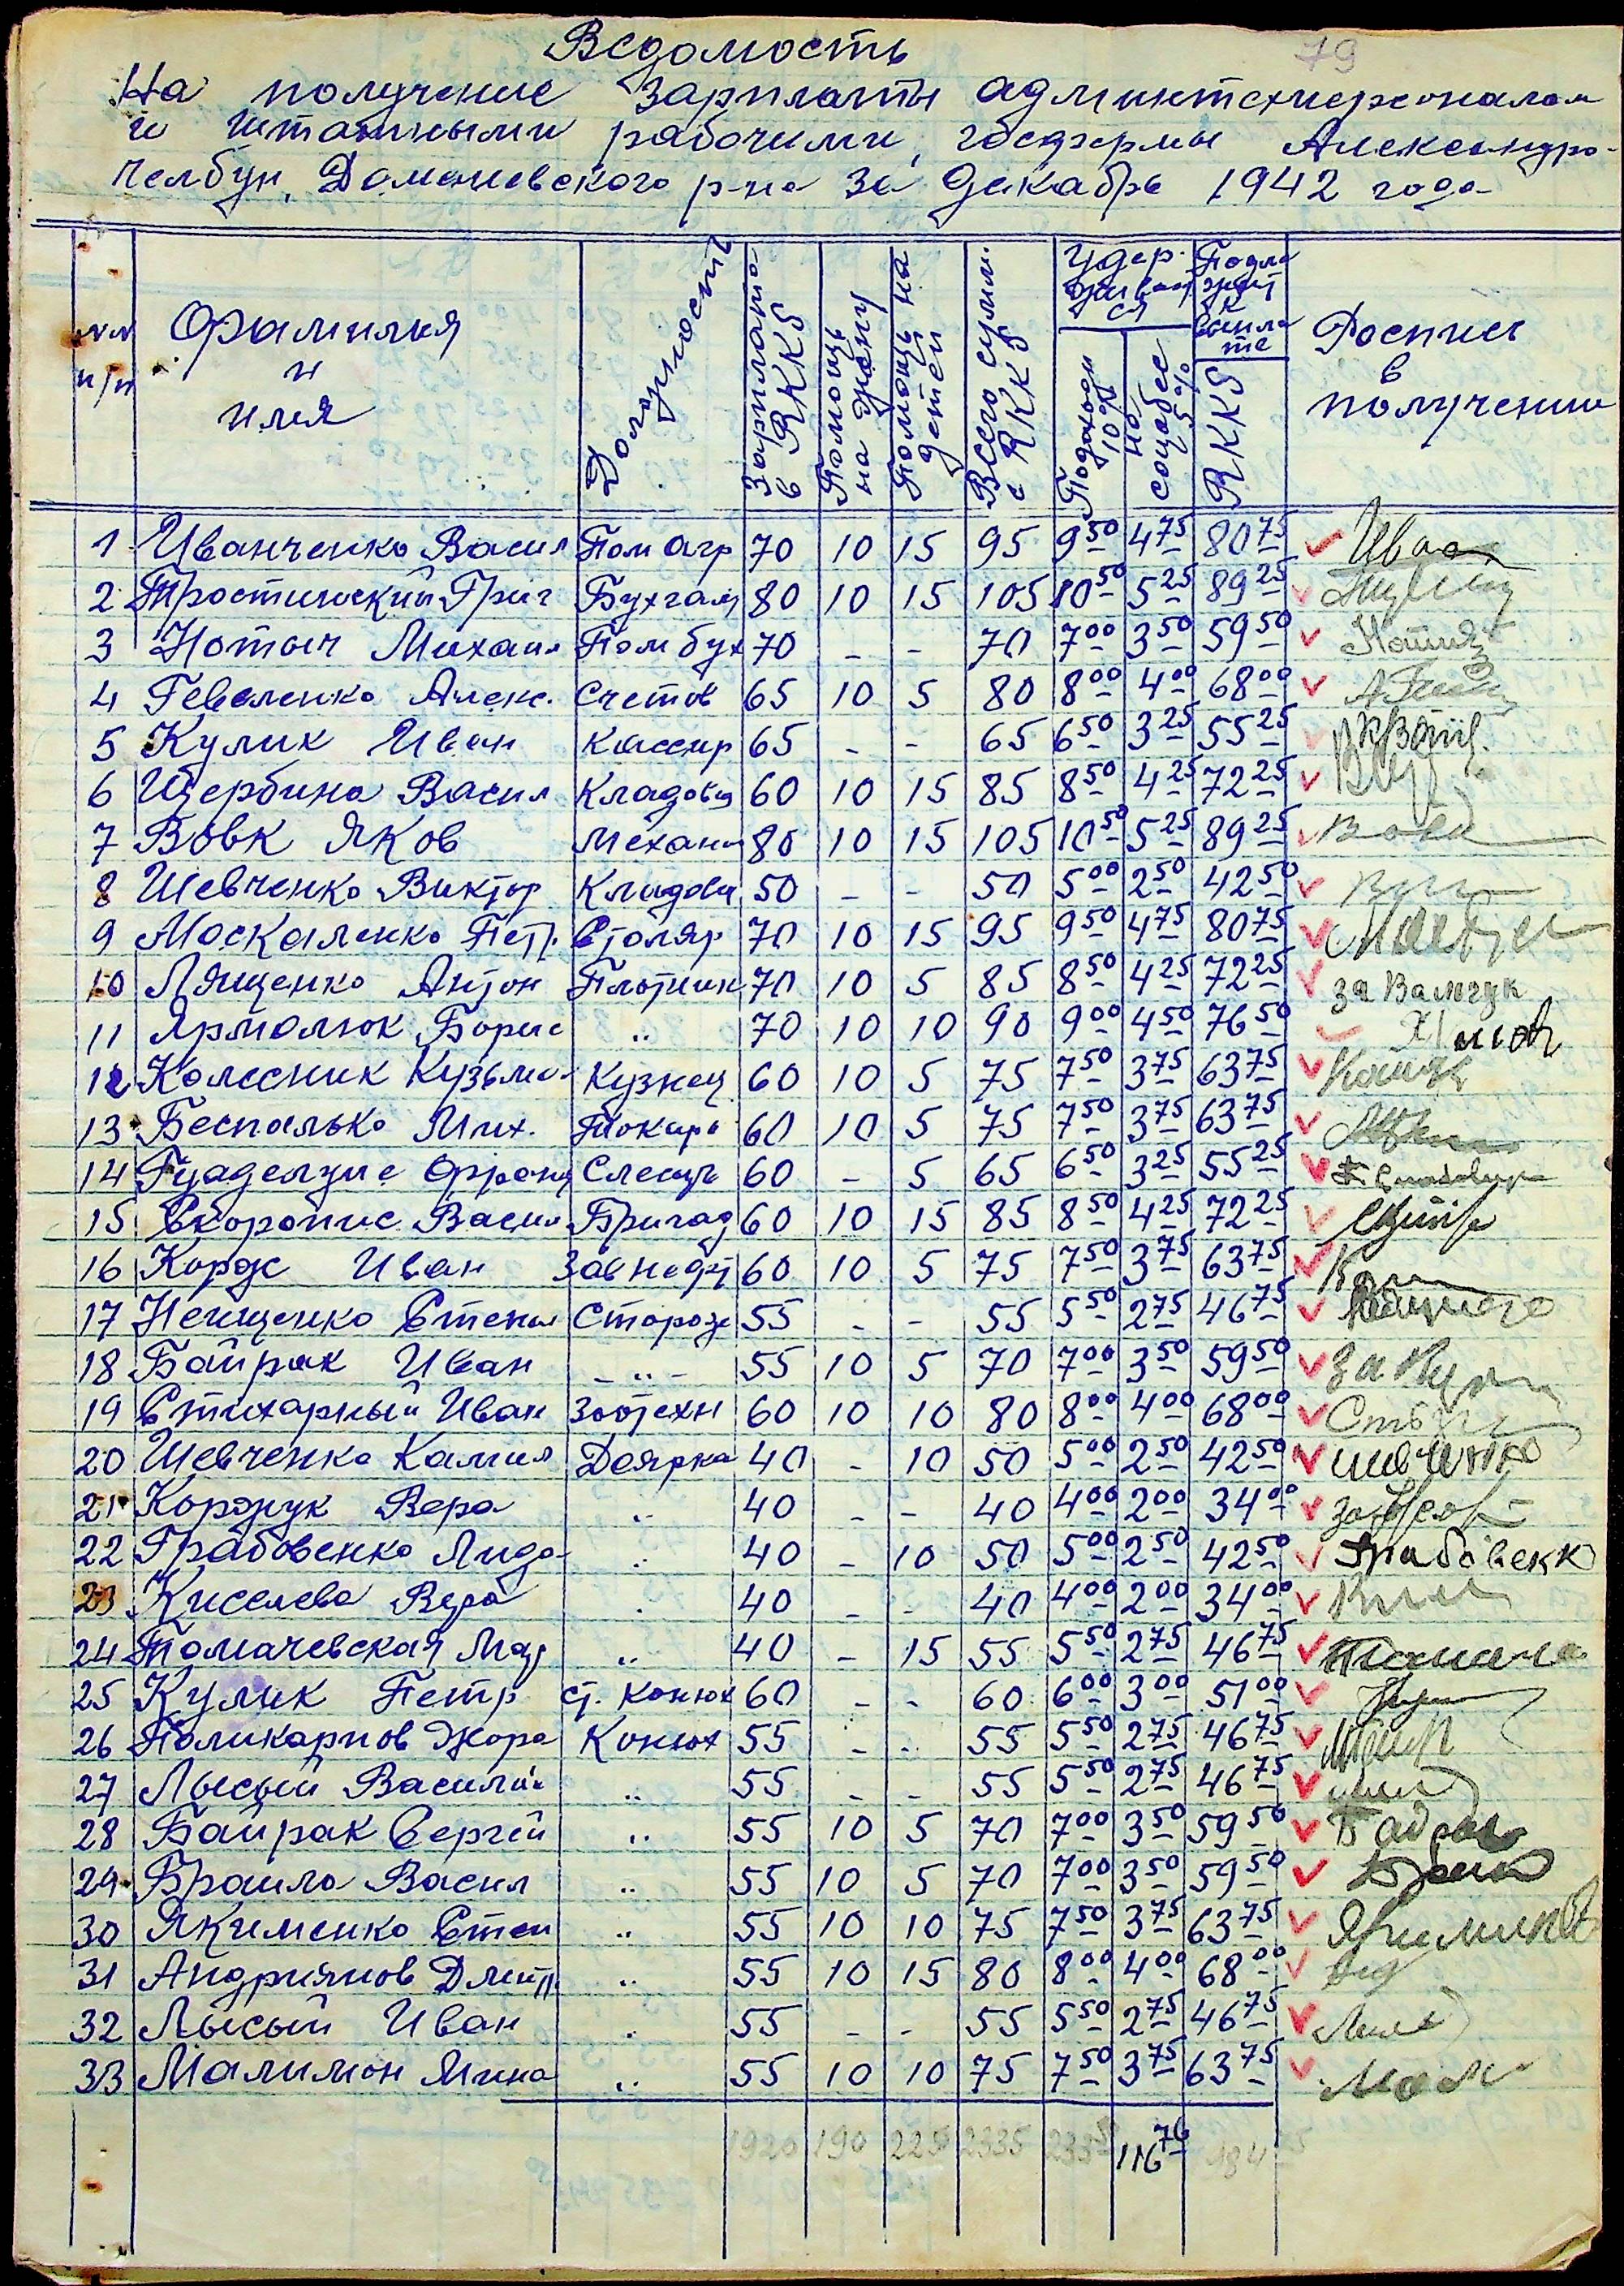 79
Ведомость
На получение зарплаты админтехперсоналом
и штатными рабочими, госфермы Александро-
Гельбун, Доманевского р-на за декабрь 1942 года
№№ п/п
Фамилия и имя
Должность
Зарплата в RKKS
Помощь на жену
Помощь на детей
Всего сумм. в RKKS
Удерживается
Подоходн 10%
на соцобес 5%
Подлежит к выплате
RKKS
Роспись в получении
1 Иванченко Васил Пом агр 70 10 15 95 9 50 4 75 80 75
2 Тростинский Григ Бухгалт 80 10 15 105 10 50 5 25 89 25
3 Нотыч Михаил Пом бух 70 - - 70 7 00 3 50 59 50
4 Геваленко Алекс. Счетов 65 10 5 80 8 00 4 00 68 00
5 Кулик Иван Кассир 65 - - 65 6 50 3 25 55 25
6 Щербина Васил Кладовщ 60 10 15 85 8 50 4 25 72 25
7 Вовк Яков Механи 80 10 15 105 10 50 5 25 89 25
8 Шевченко Виктор Кладовщ 50 - - 50 5 00 2 50 42 50
9 Москаленко Петр. Столяр 70 10 15 95 9 50 4 75 80 75
10 Лященко Антон Плотник 70 10 5 85 8 50 4 25 72 25 за Вамчук
11 Ярмолюк Борис " 70 10 10 90 9 00 4 50 76 50
12 Колесник Кузьма Кузнец 60 10 5 75 7 50 3 75 63 75
13 Беспалько Мих. Токарь 60 10 5 75 7 50 3 75 63 75
14 Гваделупе Франц Слесарь 60 - 5 65 6 50 3 25 55 25
15 Скоропис Васил Бригад 60 10 15 85 8 50 4 25 72 25
16 Корж Иван Зав нефт 60 10 5 75 7 50 3 75 63 75
17 Нещенко Степан Сторож 55 - - 55 5 50 2 75 46 75
18 Байрак Иван - " - 55 10 5 70 7 00 3 50 59 50
19 Стихарный Иван Зоотехн 60 10 10 80 8 00 4 00 68 00
20 Шевченко Камил Доярка 40 - 10 50 5 00 2 50 42 50 шевченко
21 Коржук Вера " 40 - - 40 4 00 2 00 34 00
22 Грабовенко Лида " 40 - 10 50 5 00 2 50 42 50 Грабовенко
23 Киселева Вера " 40 - - 40 4 00 2 00 34 00
24 Томачевская Мар " 40 - 15 55 5 50 2 75 46 75
25 Кулик Петр ст. конюх 60 - - 60 6 00 3 00 51 00
26 Поликарпов Жора Конюх 55 - - 55 5 50 2 75 46 75
27 Лысый Василий " 55 - - 55 5 50 2 75 46 75
28 Байрак Сергей " 55 10 5 70 7 00 3 50 59 50
29 Браило Васил " 55 10 5 70 7 00 3 50 59 50
30 Якименко Степ " 55 10 10 75 7 50 3 75 63 75
31 Андриянов Дмитр. " 55 10 15 80 8 00 4 00 68 00
32 Лысый Иван " 55 - - 55 5 50 2 75 46 75
33 Малимон Мина " 55 10 10 75 7 50 3 75 63 75
1920 190 225 2335 233 5 116 76